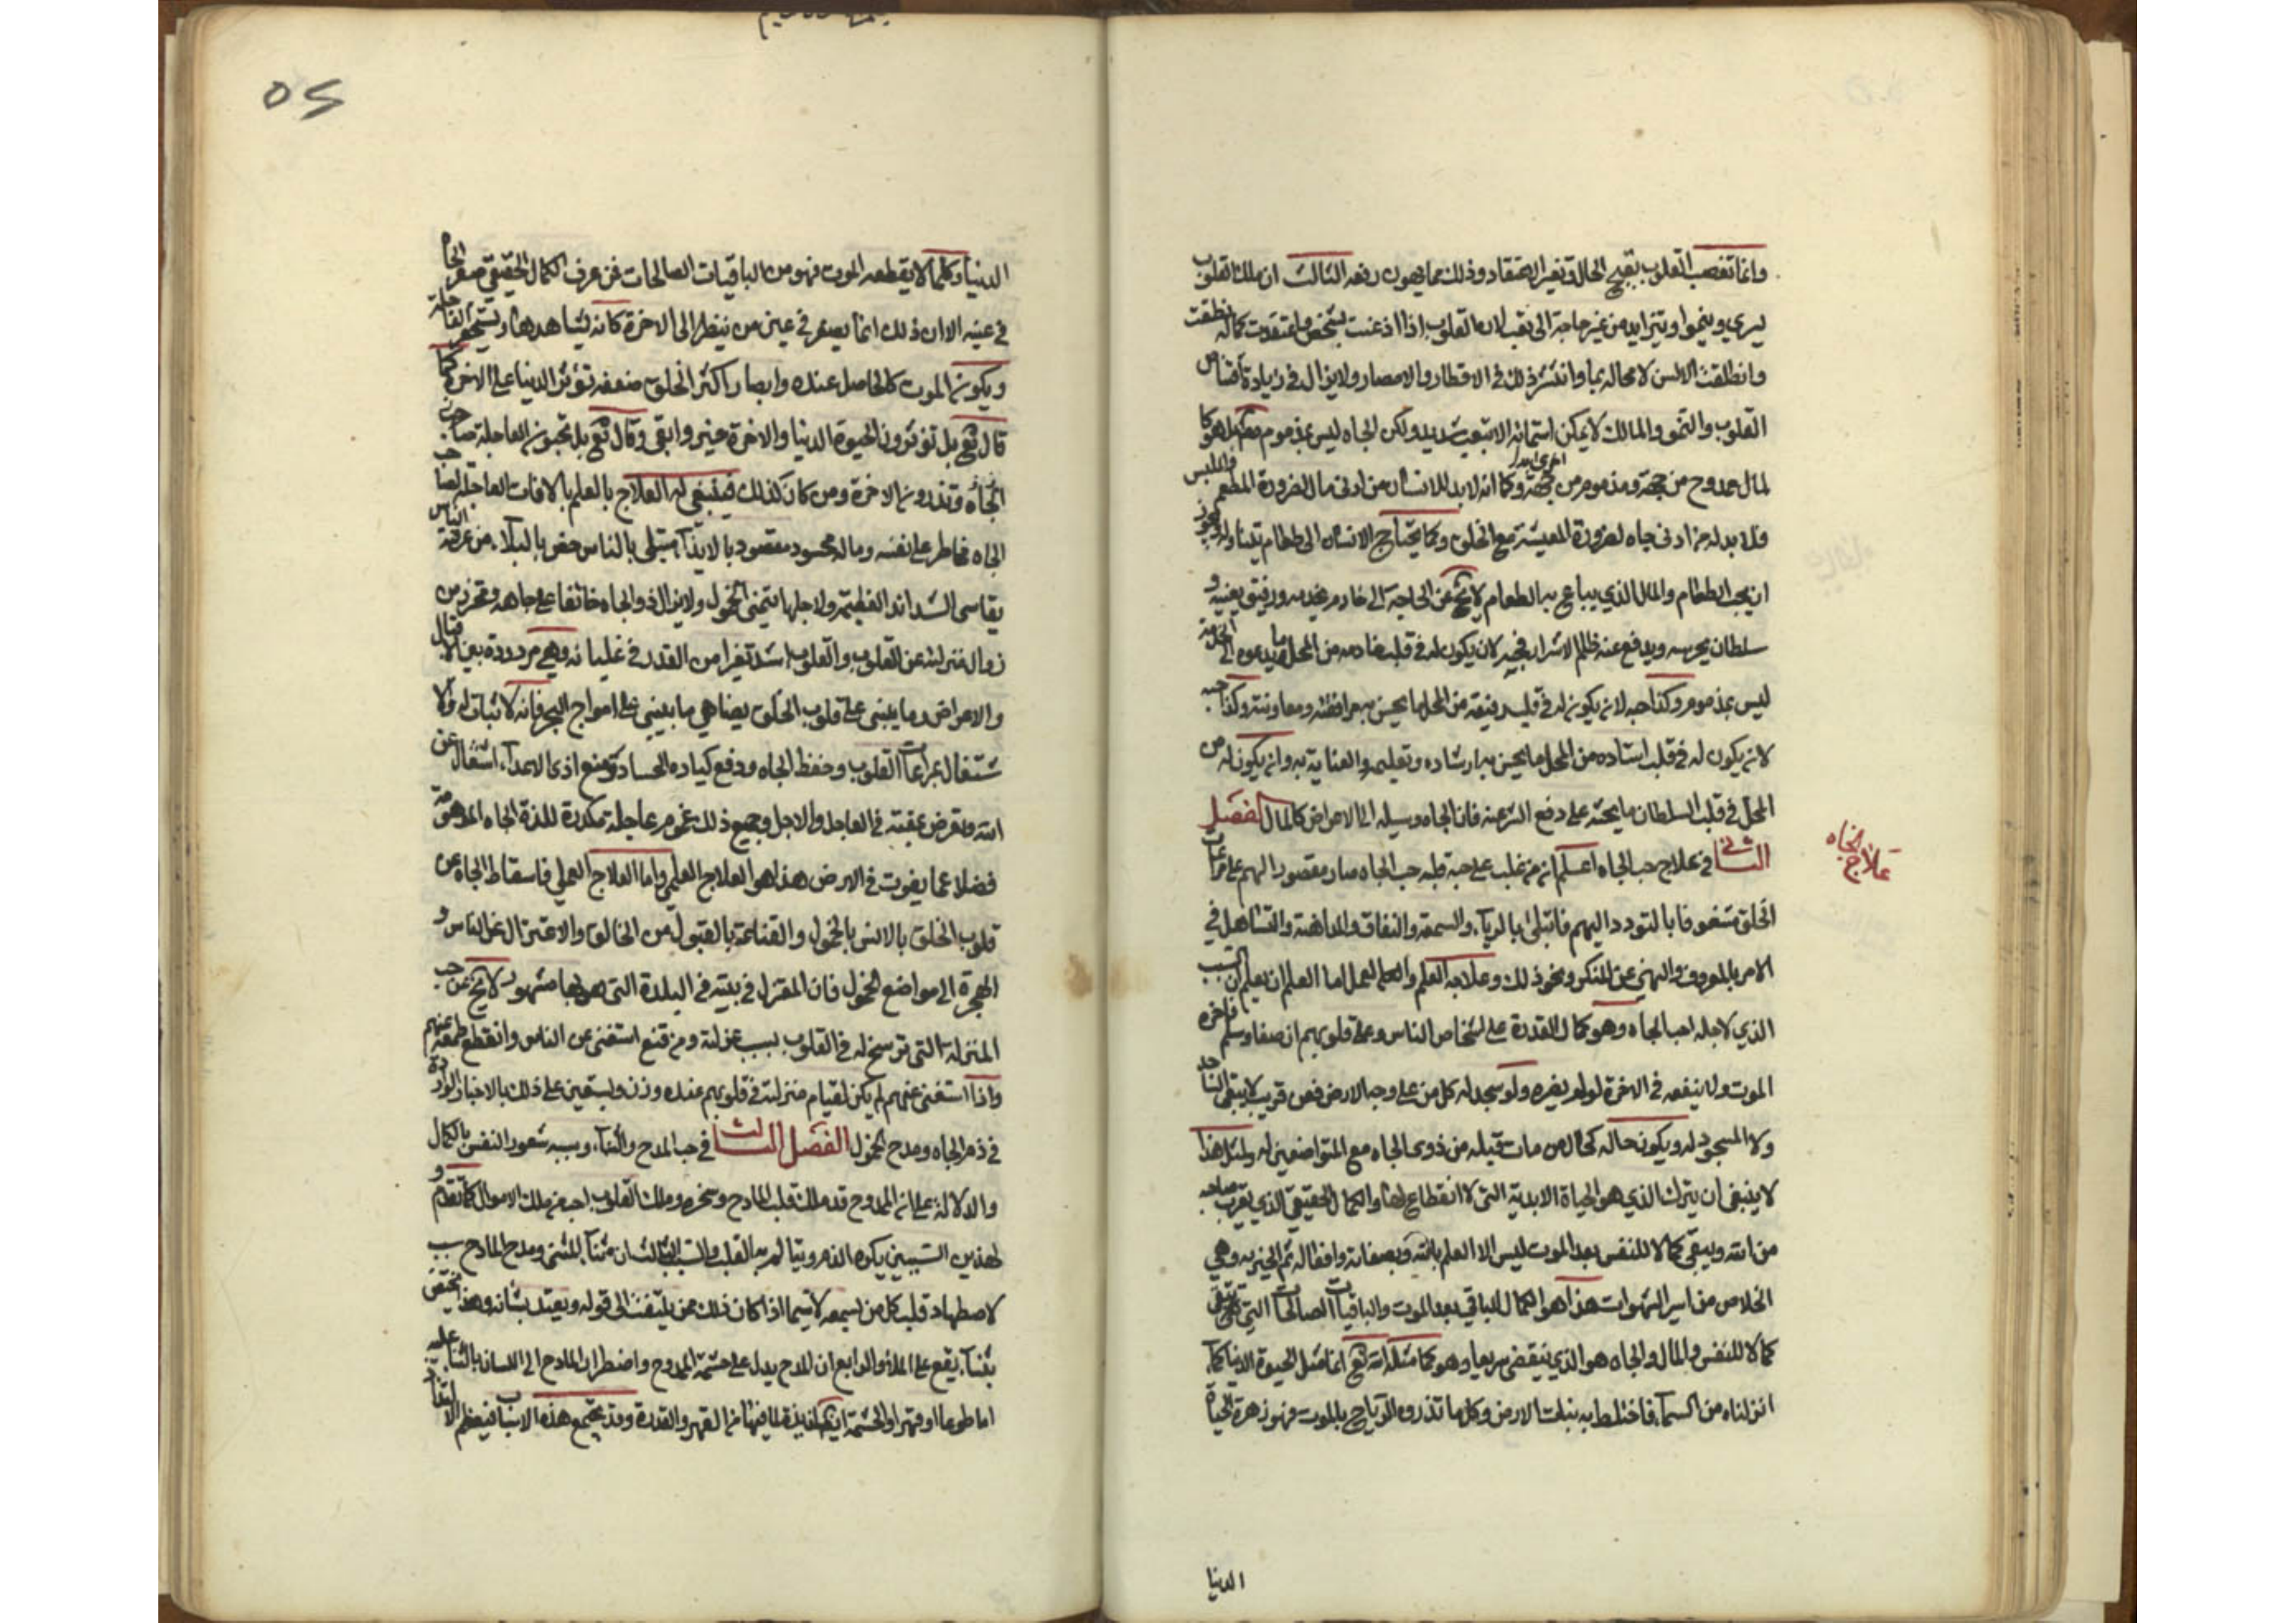 وانما تغصب القلوب بتقبيح الحال وتغير الاعتقاد وذلك مما يهون دفعه الثالث ان ملك القلوب
يسري وينموا ويتزايد من غير حاجة الى تعب لان القلوب اذا اذعنت بشخص واعتقدت كماله نطقت
وانطلقت الالسن لا محالة بها وانتشر ذلك في الاقطار والامصار ولا يزال في زيادة اقتناص
القلوب والنمو والمالك لا يمكن استنمائه الا بتعب شديد ولكن الجاه ليس بمذموم بل هو كا
لمال ممدوح من جهة ومذموم من جهة اخرى وكما انه لا بد للانسان من ادنى مال لضرورة المطعم والملبس
فلا بد له من ادنى جاه لضرورة المعيشة مع الخلق وكما يحتاج الانسان الى طعام يتناوله فيجوز
ان يحب الطعام والمال الذي يباع به الطعام لا يخ عن الحاجة الى خادم يخدمه ورفيق يعينه و
سلطان يحرسه ويدفع عنه ظلم الاشرار فحبه لان يكون له في قلب خادمه من المحل ما يدعوه الى الخدمة
ليس بمذموم وكذا حبه لان يكون له في قلب رفيقه من المحل ما يحسن به مرافقته ومعاونته وكذا حبه
لان يكون له في قلب استاده من المحل ما يحسن به ارشاده وتعليمه والعناية به وان يكون له من
المحل في قلب السلطان ما يحثه على دفع الشر عنه فان الجاه وسيلة الى الاعراض كالمال الفصل
الثاني في علاج حب الجاه اعلم انه من غلب على قلبه حب الجاه صار مقصور الهم على مراعات
الخلق مشغوفا بالتودد اليهم فابتلى بالريآء والسمعة والنفاق والمداهنة والتساهل في
الامر بالمعروف والنهي عن المنكر ونحو ذلك وعلاجه العلم والعمل اما العلم ان يعلم ان السبب
الذي لاجله احب الجاه وهو كمال القدرة على اشخاص الناس وعلى قلوبهم ان صفا وسلم فاخره
الموت ولا ينفعه في الاخرة لو لم يضره ولو سجد له كل من على وجه الارض فعن قريب لا يبقى الساجد
ولا المسجود له ويكون حاله كحال من مات قبله من ذوي الجاه مع المتواضعين له ولمثل هذا
لا ينبغي ان يترك الذي هو الحياة الابدية التي لا انقطاع لها والكمال الحقيقي الذي يقرب صاحبه
من الله ويبقى كمالا للنفس بعد الموت ليس الا العلم بالله وبصفاته وافعاله ثم الحرية وهي
الخلاص من اسر الشهوات هذا هو الكمال الباقي بعد الموت والباقيات الصالحات التي تبقى
كمالا للنفس والمال والجاه هو الذي ينقضي سريعا وهو كما مثله الله تع انما مثل الحيوة الدنيا كمآء
انزلناه من السمآء فاختلط به نبات الارض وكلما تذروه الرياح بالموت فهو زهرة الحياة
الدنيا
علاج الجاه
٥٢
الدنيا وكلما لا يقطعه الموت فهو من الباقيات الصالحات فمن عرف الكمال الحقيقي صغر الجاه
في عينه الا ان ذلك انما يصغر في عين من ينظر الى الاخرة كانه يشاهدها ويستحقر العاجلة
ويكون الموت كالحاصل عنده وابصار اكثر الخلق ضعيفة تؤثر الدنيا على الاخرة كما
قال تع بل تؤثرون الحيوة الدنيا والاخرة خير وابقى وقال تع بل تحبون العاجلة
وتذرون الاخرة ومن كان كذلك فينبغي له العلاج بالعلم بالافات العاجلة
الجاه مخاطر على نفسه وماله محسود مقصود بالايذآء مبتلى بالناس
يقاسي الشدائد العظيمة ولاجلها يتمنى الخمول ولا يزال ذو الجاه خائفا على جاهه ومحترز من
زوال منزلته عن القلوب والقلوب اشد تغيرا من القدر في غليانه وهي مرددة بين الاقبال
والاعراض وما يبنى على قلوب الخلق يضاهي ما يبنى على امواج البحر فانه لا ثبات له والا
شتغال بمراعات القلوب وحفظ الجاه ودفع كيد الحساد ومنع اذى الاعدآء اشتغال عن
الله وتعرض لمقته في العاجل والاجل وجميع ذلك غموم عاجلة مكدرة للذة الجاه
فضلا عما يفوت في الاخرة هذا هو العلاج العلمي واما العلاج العملي فاسقاط الجاه عن
قلوب الخلق بالانس بالخمول والقناعة بالقبول من الخالق والاعتزال عن الناس و
الهجرة الى مواضع الخمول فان المعتزل في بيته في البلدة التي هو بها مشهور لا يخ عن حب
المنزلة التي ترسخ له في القلوب بسبب عزلته ومن قنع استغنى عن الناس وانقطع طمعه عنهم
واذا استغنى عنهم لم يكن لقيام منزلته في قلوبهم عنده وزن ويستعين على ذلك بالاخبار الواردة
في ذم الجاه ومدح الخمول الفصل الثالث في حب المدح والثنآء وسببه شعور النفس بالكمال
والدلالة على ان الممدوح قد ملك قلب المادح وسخره وملك القلوب احب من ملك الاموال كما تقدم و
لهذين السببين يكره الذم ويتالم به القلب والسبب الثالث ان ثنآء المثني ومدح المادح سبب
لاصطياد قلب كل من يسمعه لاسيما اذا كان ذلك ممن يلتفت الى قوله ويعتد بشانه وهذا مختص
بثنآء يقع على الملأ والرابع ان المدح يدل على حشمة الممدوح واضطرار المادح الى اللسان بالثنآء عليه
اما طوعا او قهرا والحشمة ايضا لذيذة لما فيها من القهر والقدرة وقد تجتمع هذه الاسباب فيعظم الالتذاذ